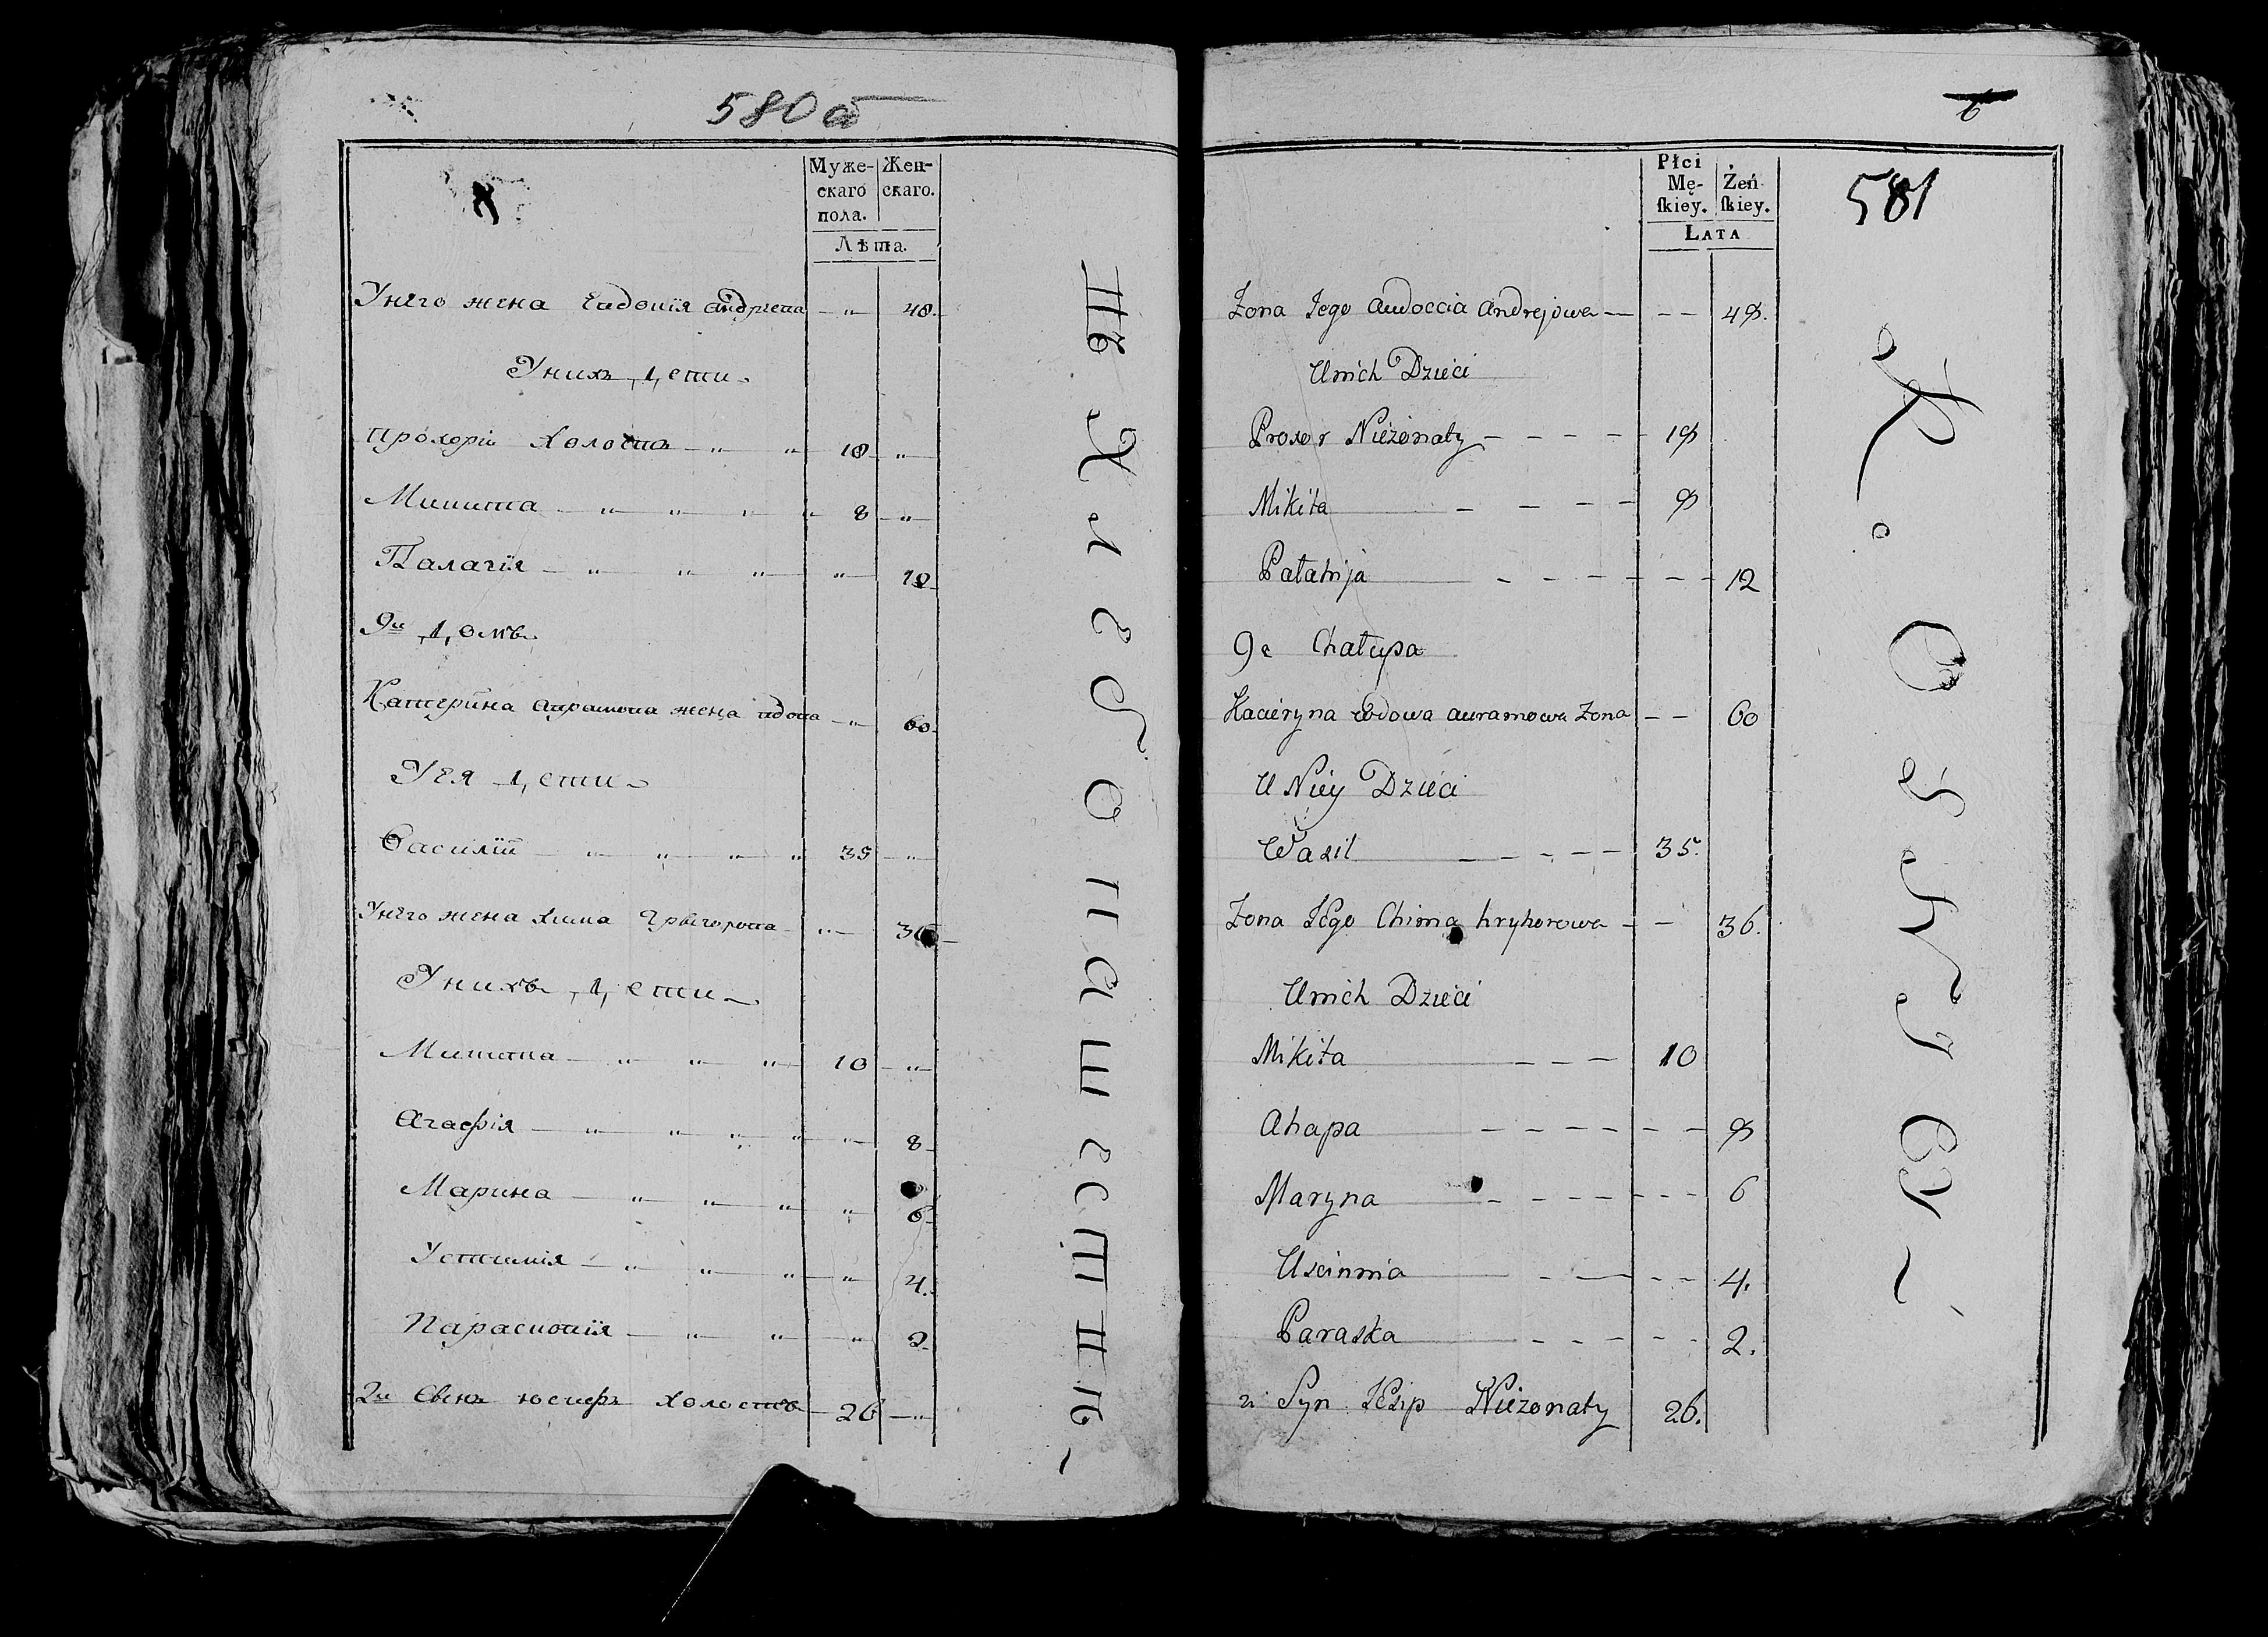 580 об
Муже-
скаго
пола.
Жен-
скаго.
Лѣта.
Унего жена Евдокія андреева — " — 48.
Унихъ дети
Прохоріи Холостъ — " " 18 "
Микита — " " " " 8 — "
Палагія — " " " " 12
9й домъ
Катерина аврамова жена вдова — " — 60.
Уея дети
Василій — " " " " 35 — "
Унего жена Хима Грыгорова — " — 36
Унихъ дети
Микита — " " " 10 — "
Агафія — " " " " " 8
Марина — " " " " 6
Устимія — " " " " 4.
Парасковія — " " " 2.
2й Сынъ юсифъ Холостъ — 26 — "
6
581
Płci
Mę-
ſkiey.
Żeń
ſkiey.
LATA
Zona Jego Audoccia Andrejowa — — — 48.
Unich Dzieci
Proxor Nieżonaty — — — — 18
Mikita — — — — 8
Pałahija — — — — — — 12
9a Chałupa
Kacieryna wdowa auramowa Zona — — 60
U Niey Dzieci
Wasil — — — — — 35.
Zona Jego Chima hryhorowa — — 36.
Unich Dzieci
Mikita — — — 10
Ahapa — — — — — — — 8
Maryna — — — — — — — 6
Uscinnia — — — — 4.
Paraska — — — — — — 2.
2i Syn Jesip Nieżonaty 26.